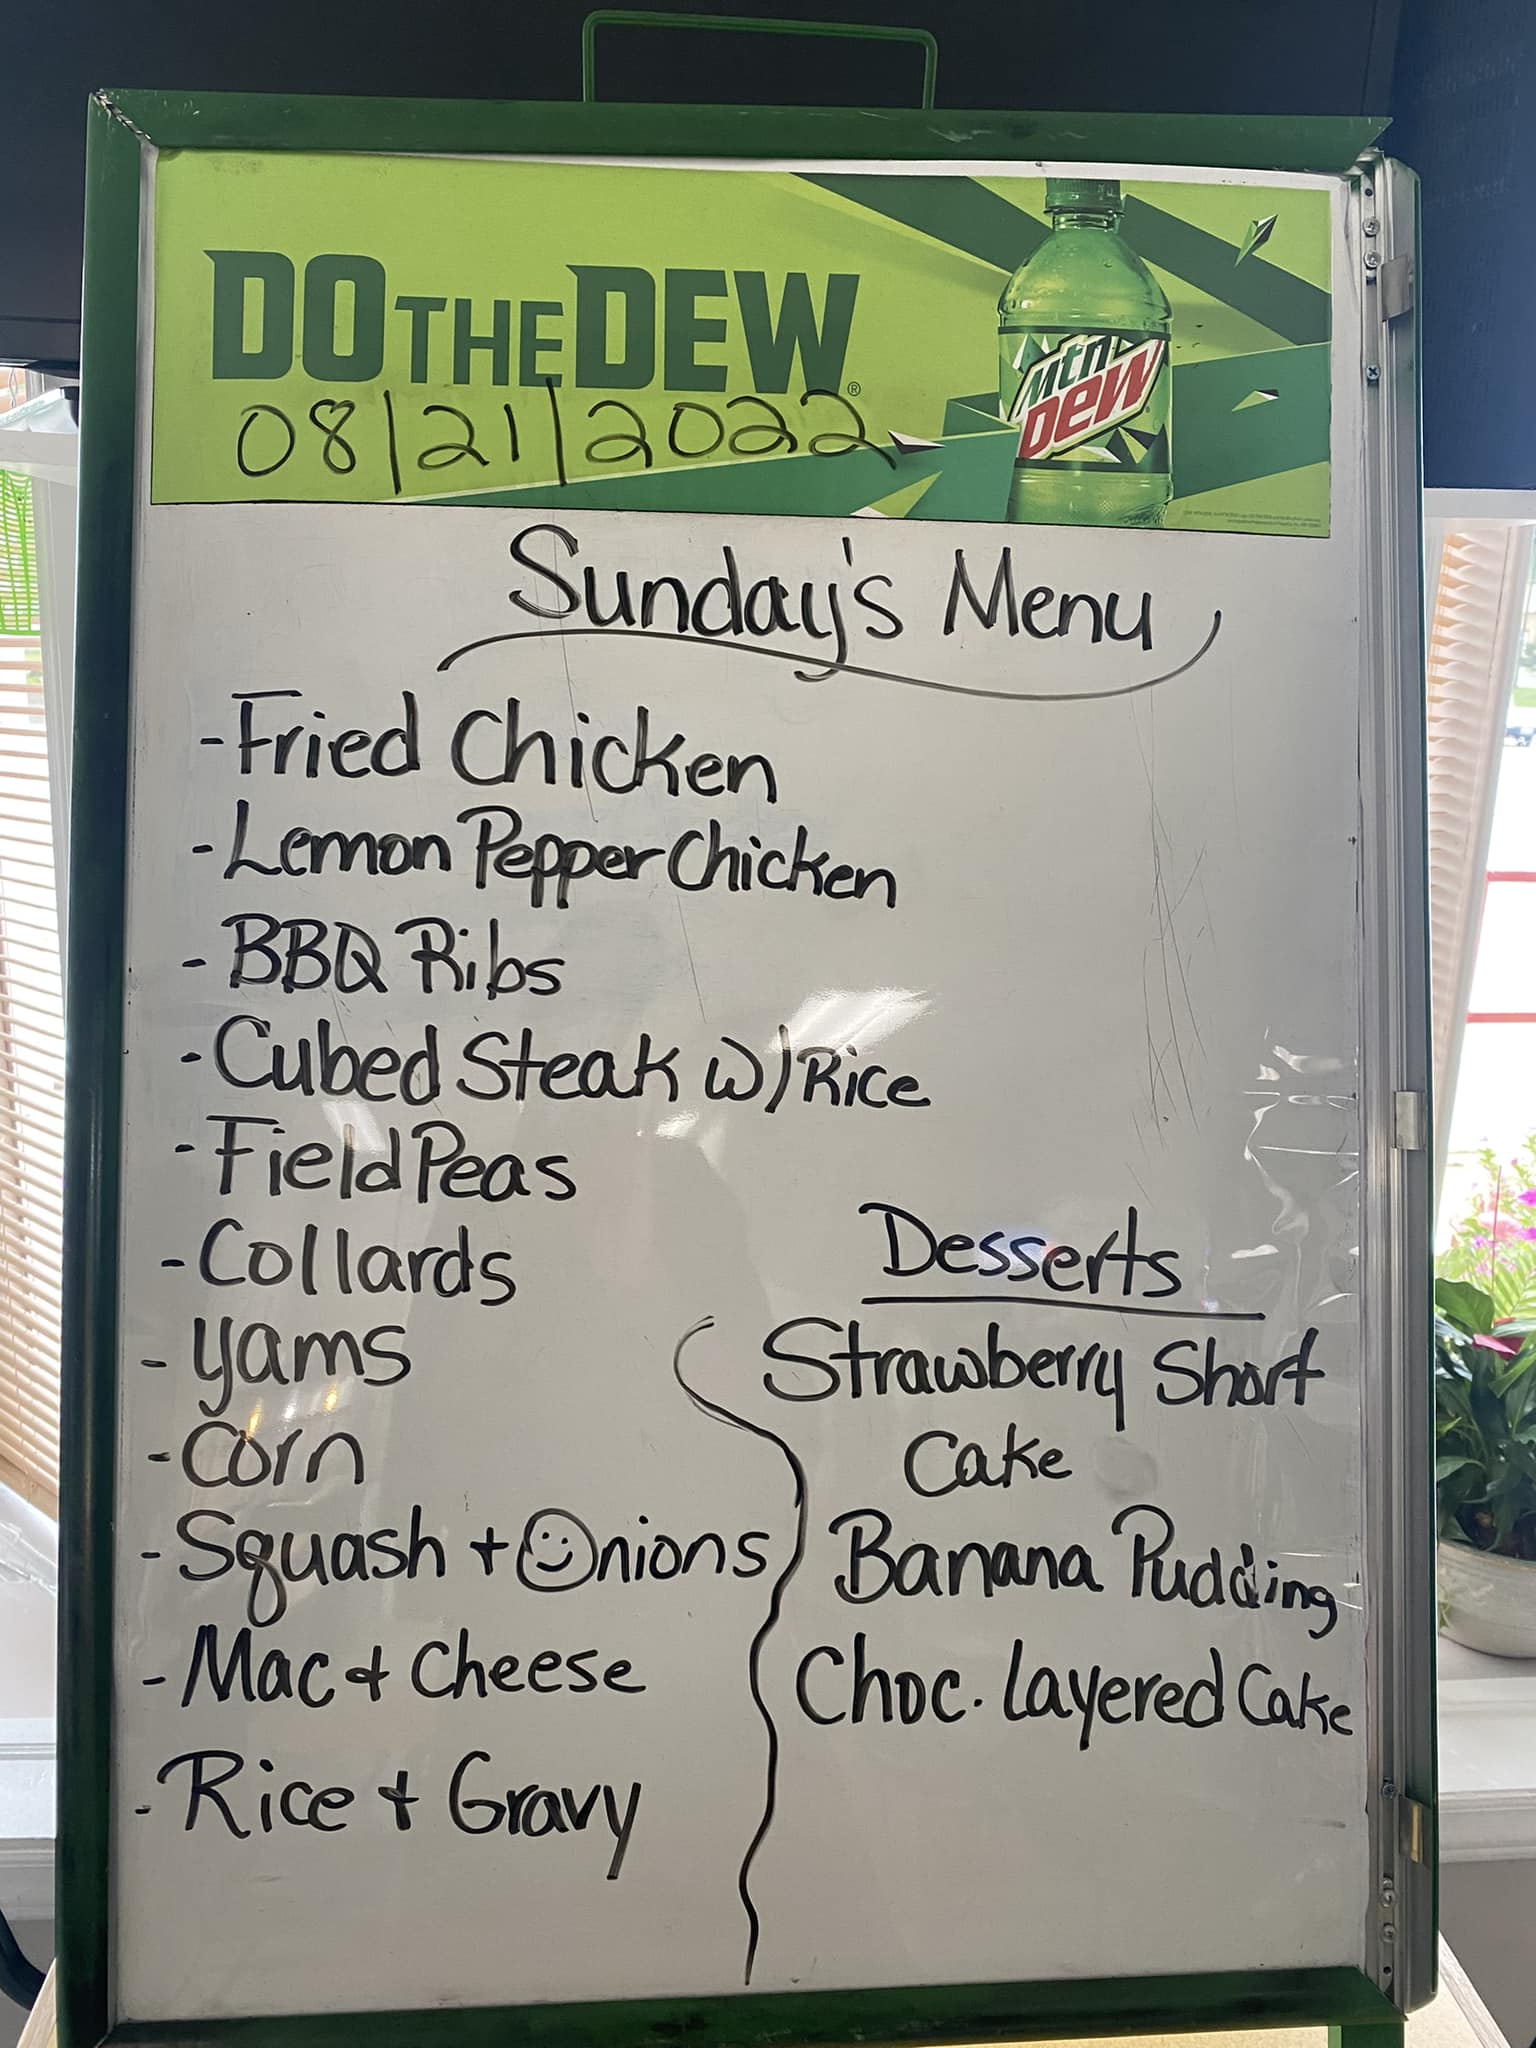 DO THE DEW®
mtn DEW
08/21/2022
Sunday's Menu
- Fried Chicken
- Lemon Pepper Chicken
- BBQ Ribs
- Cubed Steak w/Rice
- Field Peas
- Collards
- Yams
- Corn
- Squash + Onions
- Mac + Cheese
- Rice + Gravy
Desserts
Strawberry Short
Cake
Banana Pudding
Choc. Layered Cake